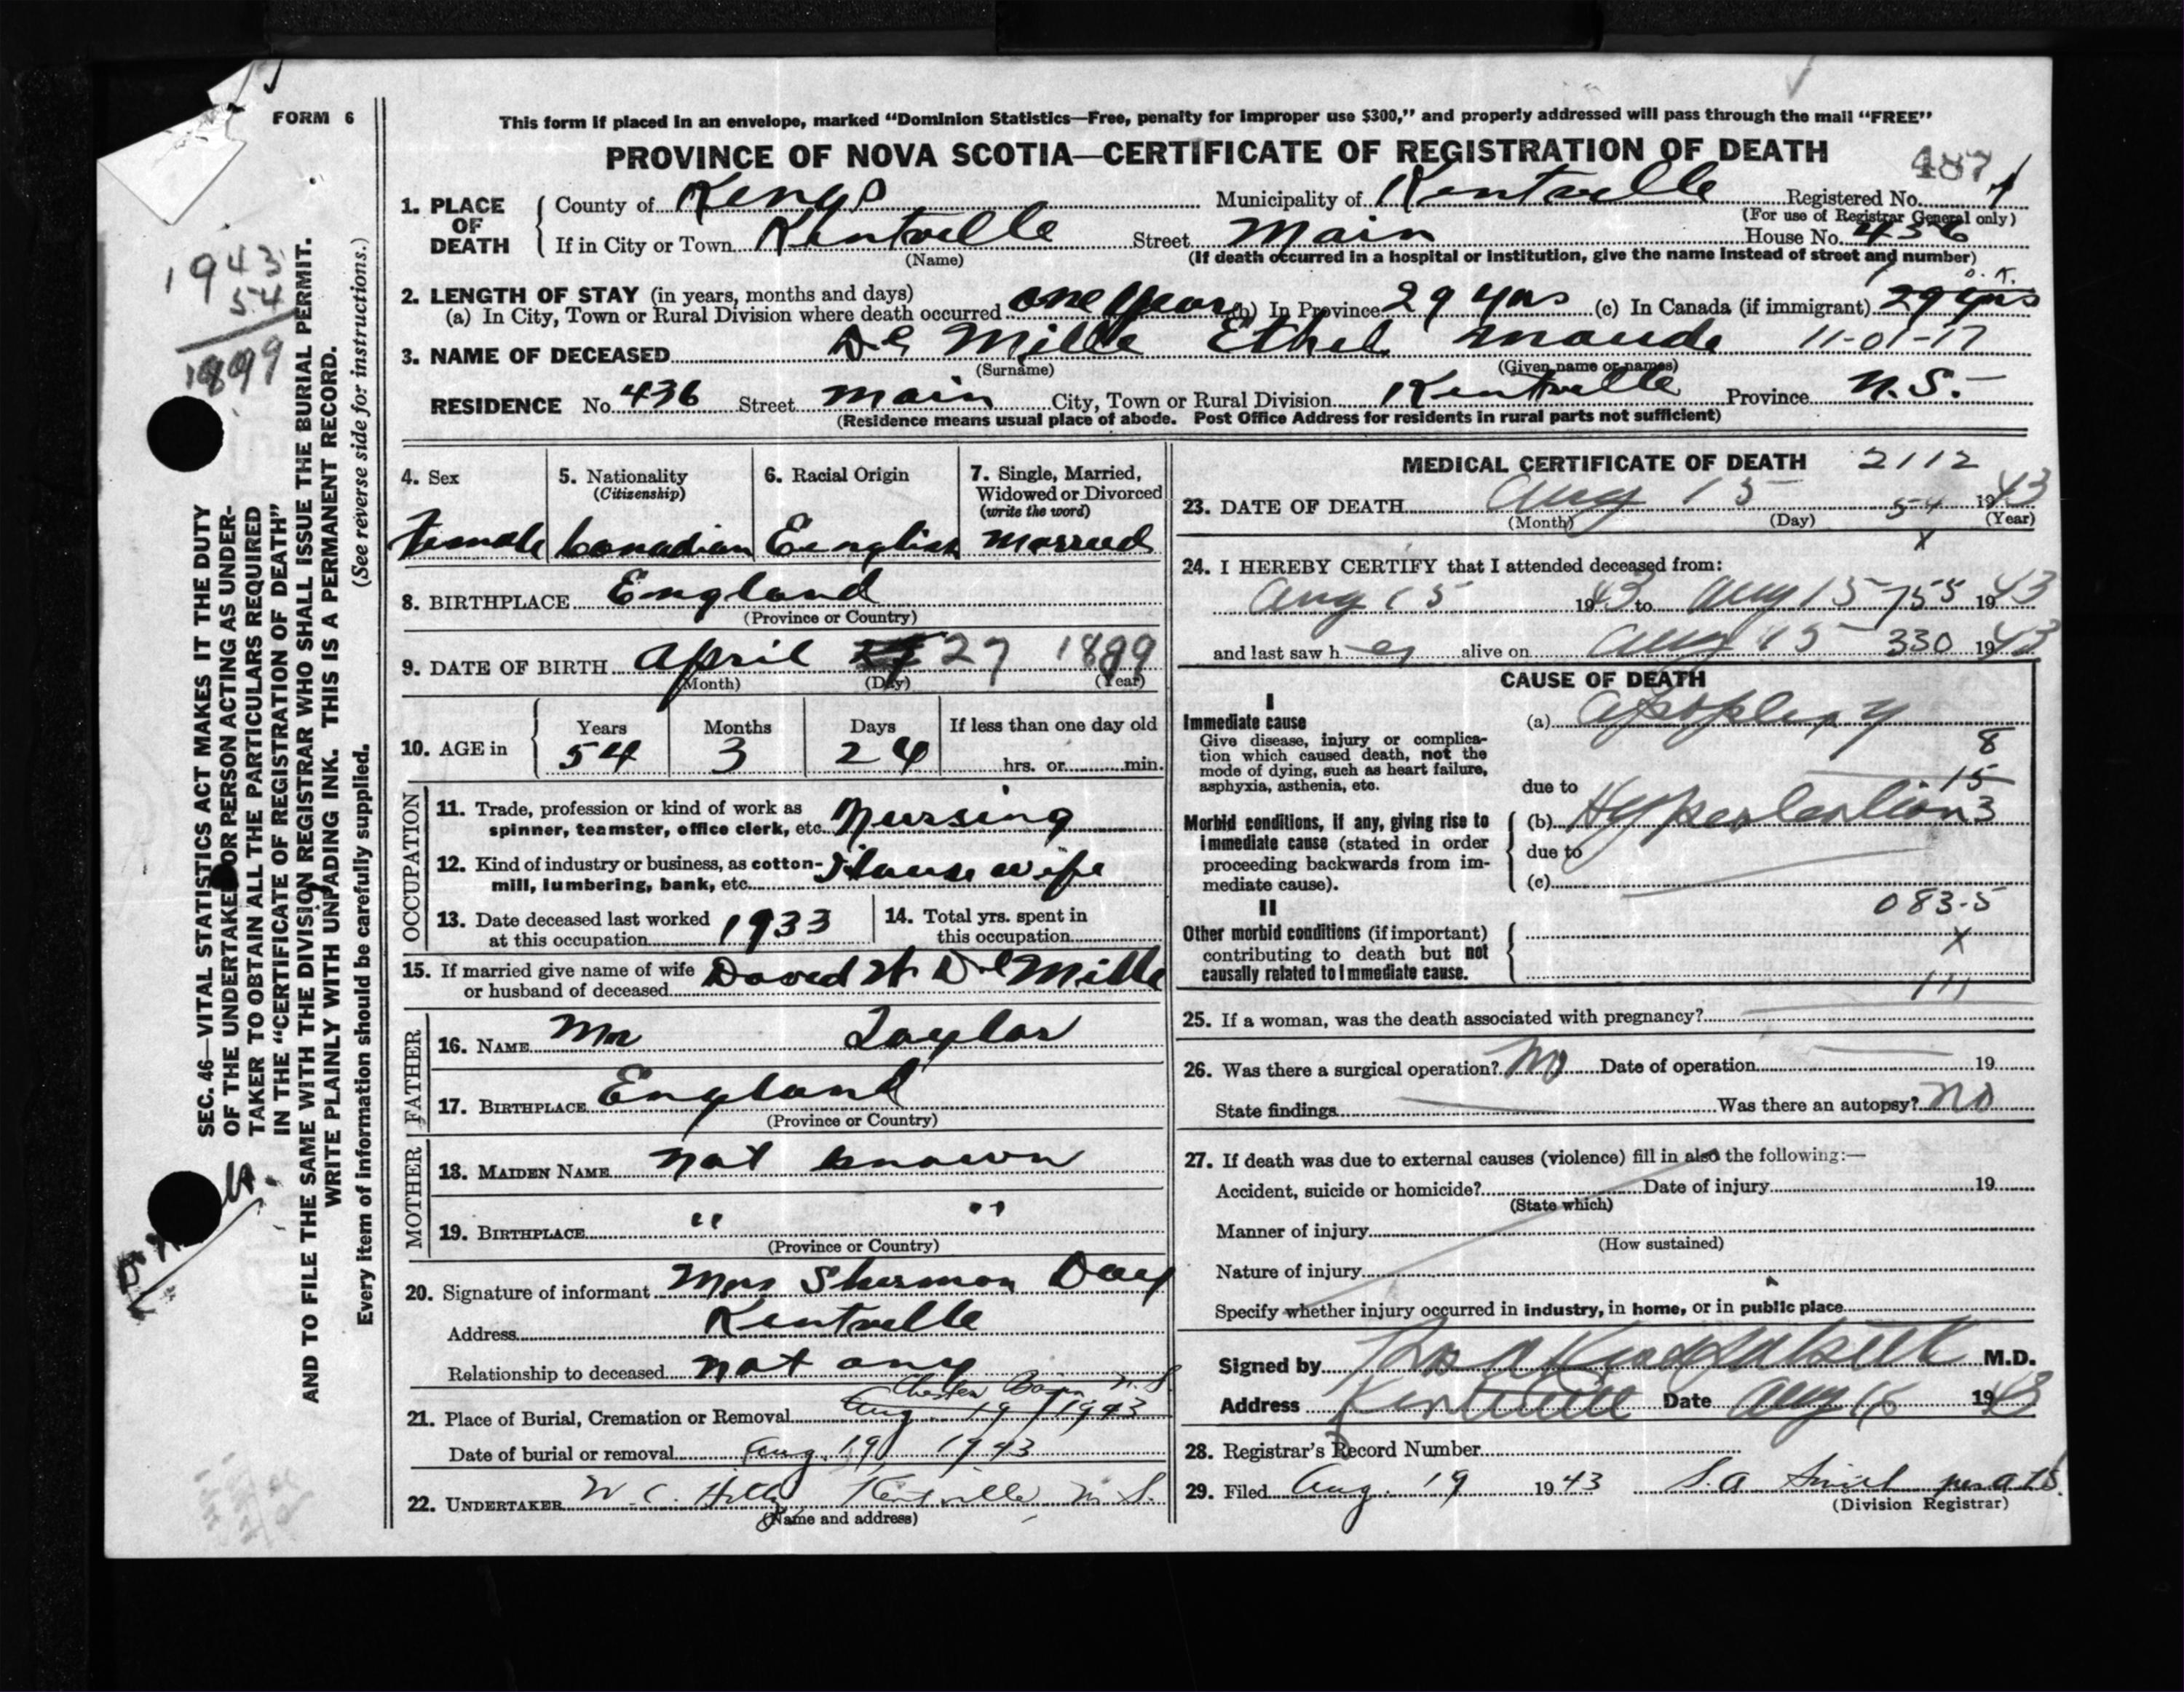 FORM 6
This form if placed in an envelope, marked “Dominion Statistics—Free, penalty for improper use $300,” and properly addressed will pass through the mail “FREE”
PROVINCE OF NOVA SCOTIA—CERTIFICATE OF REGISTRATION OF DEATH
487
1. PLACE OF DEATH
County of Kings Municipality of Kentville Registered No.
(For use of Registrar General only)
If in City or Town Kentville Street Main House No. 436
(Name) (If death occurred in a hospital or institution, give the name instead of street and number)
O.K.
2. LENGTH OF STAY (in years, months and days)
(a) In City, Town or Rural Division where death occurred one year (b) In Province 29 yrs (c) In Canada (if immigrant) 29 yrs
3. NAME OF DECEASED De Mille Ethel Maude 11-01-17
(Surname) (Given name or names)
RESIDENCE No. 436 Street Main City, Town or Rural Division Kentville Province N.S.
(Residence means usual place of abode. Post Office Address for residents in rural parts not sufficient)
4. Sex
Female
5. Nationality
(Citizenship)
Canadian
6. Racial Origin
English
7. Single, Married,
Widowed or Divorced
(write the word)
Married
8. BIRTHPLACE England
(Province or Country)
9. DATE OF BIRTH April 27 1889
(Month) (Day) (Year)
10. AGE in
Years Months Days If less than one day old
54 3 24 hrs. or min.
OCCUPATION
11. Trade, profession or kind of work as
spinner, teamster, office clerk, etc. Nursing
12. Kind of industry or business, as cotton-
mill, lumbering, bank, etc. Housewife
13. Date deceased last worked
at this occupation 1933
14. Total yrs. spent in
this occupation
15. If married give name of wife
or husband of deceased David H De Mille
FATHER
16. NAME Mr Taylor
17. BIRTHPLACE England
(Province or Country)
MOTHER
18. MAIDEN NAME not known
19. BIRTHPLACE " "
(Province or Country)
20. Signature of informant Mrs Sherman Day
Address Kentville
Relationship to deceased not any
Chester Basin N.S.
21. Place of Burial, Cremation or Removal Aug 19 1943
Date of burial or removal Aug. 19 1943
22. UNDERTAKER W. C. Kentville N.S.
(Name and address)
MEDICAL CERTIFICATE OF DEATH 2112
23. DATE OF DEATH Aug 15 54 1943
(Month) (Day) (Year)
x
24. I HEREBY CERTIFY that I attended deceased from:
Aug 15 1943 to Aug 15 755 1943
and last saw her alive on Aug 15 330 1943
CAUSE OF DEATH
I
Immediate cause
Give disease, injury or complica-
tion which caused death, not the
mode of dying, such as heart failure,
asphyxia, asthenia, etc.
(a) Apoplexy
8
15
due to
Morbid conditions, if any, giving rise to
immediate cause (stated in order
proceeding backwards from im-
mediate cause).
(b) Hypertention 3
due to
(c)
083-5
II
Other morbid conditions (if important)
contributing to death but not
causally related to immediate cause.
X
111
25. If a woman, was the death associated with pregnancy?
26. Was there a surgical operation? No Date of operation 19
State findings Was there an autopsy? No
27. If death was due to external causes (violence) fill in also the following:—
Accident, suicide or homicide? Date of injury 19
(State which)
Manner of injury
(How sustained)
Nature of injury
Specify whether injury occurred in industry, in home, or in public place
Signed by M.D.
Address Kentville Date Aug 16 1943
28. Registrar's Record Number
29. Filed Aug. 19 1943 S. A
(Division Registrar)
1943
54
1899
SEC. 46—VITAL STATISTICS ACT MAKES IT THE DUTY
OF THE UNDERTAKER OR PERSON ACTING AS UNDER-
TAKER TO OBTAIN ALL THE PARTICULARS REQUIRED
IN THE “CERTIFICATE OF REGISTRATION OF DEATH”
AND TO FILE THE SAME WITH THE DIVISION REGISTRAR WHO SHALL ISSUE THE BURIAL PERMIT.
WRITE PLAINLY WITH UNFADING INK. THIS IS A PERMANENT RECORD.
Every item of information should be carefully supplied. (See reverse side for instructions.)